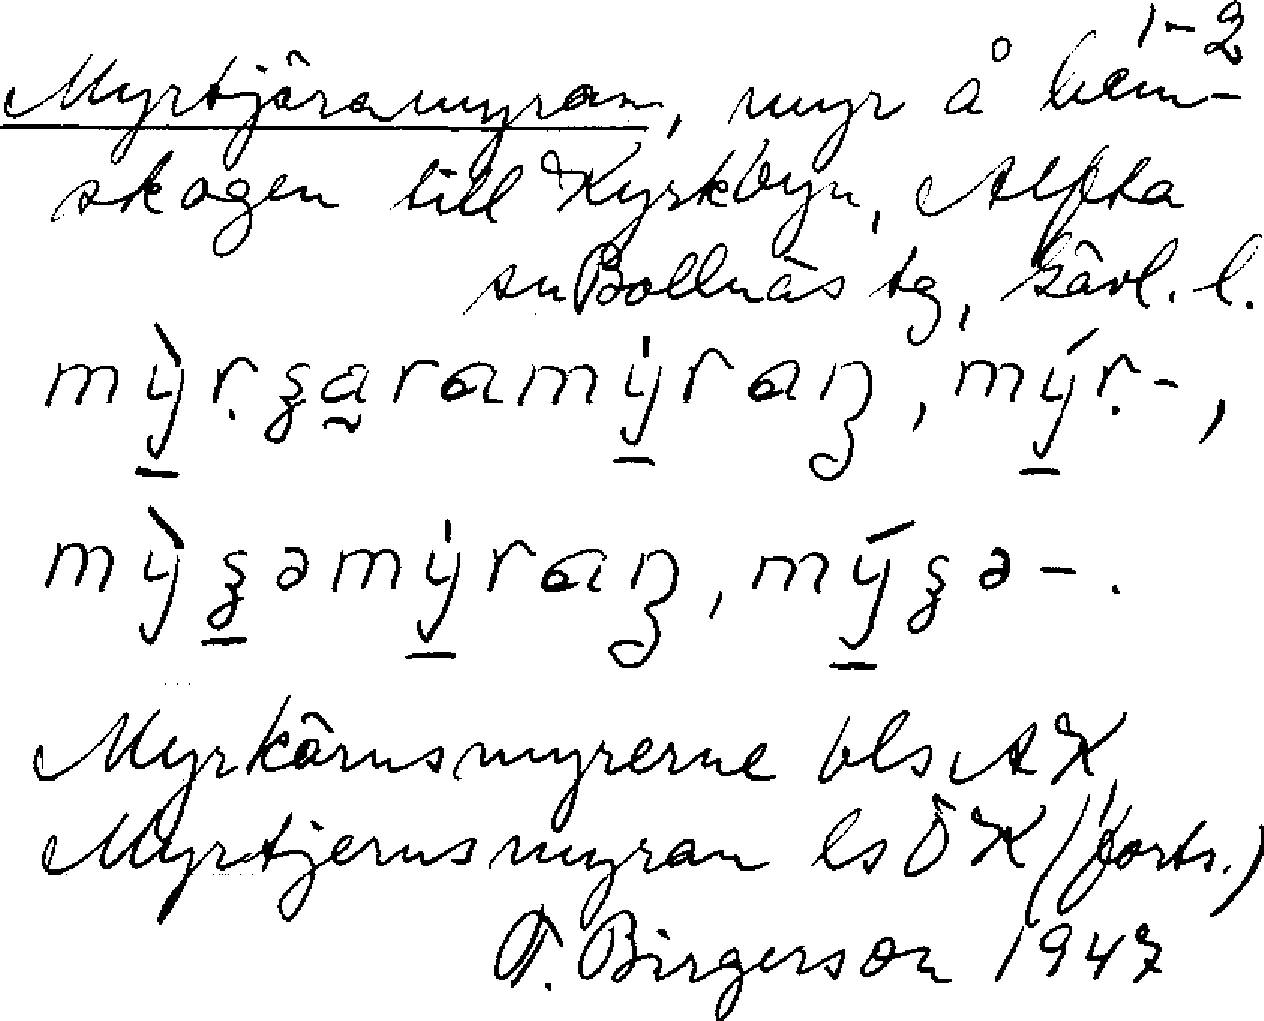 1-2
Myrtjäramyran, myr å hem-
skogen till Kyrkbyn, Alfta
sn Bollnäs tg, Gävl. l.
Myrkärnsmyrerne bls AK,
Myrtjernsmyran ls ÖK (forts.)
T. Birgerson 1947